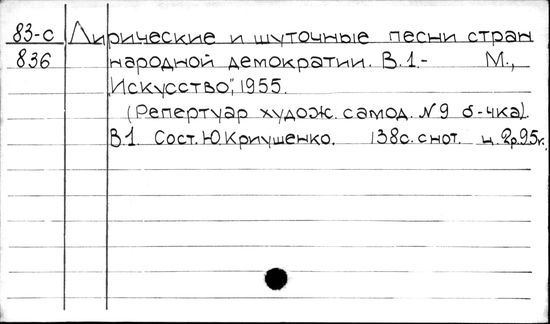 83-с Лирические и шуточные песни стран
836 народной демократии. В.1.- М.,
„Искусство", 1955.
(Репертуар худож. самод. №9 б-чка).
В.1. Сост. Ю. Криушенко. 138с. с нот. ц. 2р.95к.